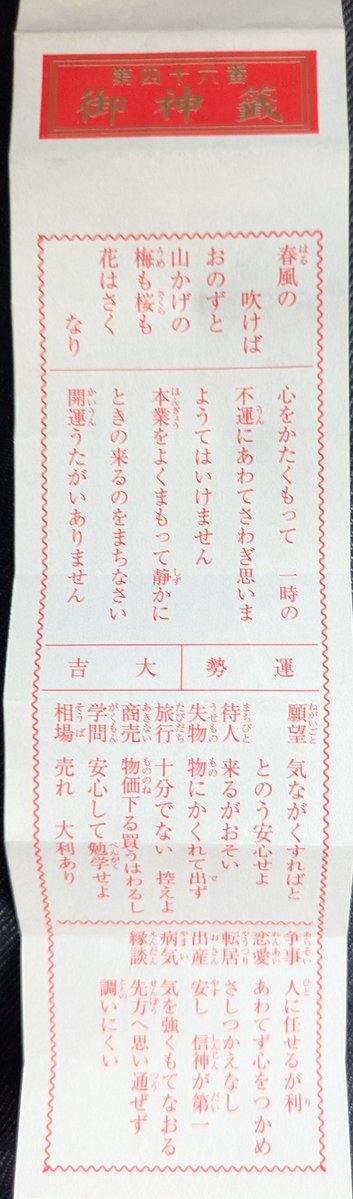 第四十六番
御神籤
春風の
吹けば
おのずと
山かげの
梅も桜も
花はさく
なり
心をかたくもって 一時の
不運にあわてさわぎ思いま
ようてはいけません
本業をよくまもって静かに
ときの来るのをまちなさい
開運うたがいありません
運勢 大吉
願望 気ながくすればと
とのう安心せよ
待人 来るがおそい
失物 物にかくれて出ず
旅行 十分でない 控えよ
商売 物価下る買うはわるし
学問 安心して勉学せよ
相場 売れ 大利あり
争事 人に任せるが利
恋愛 あわてず心をつかめ
転居 さしつかえなし
出産 安し 信神が第一
病気 気を強くもてなおる
縁談 先方へ思い通ぜず
調いにくい